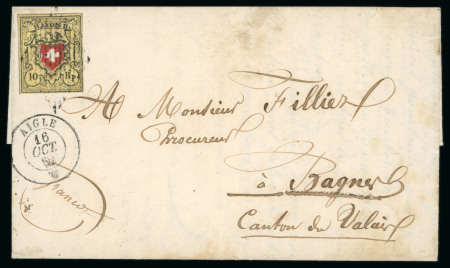 RAYON II.
10 Rp.
A Monsieur Filliez
Procureur
AIGLE
16
OCT
à Bagnes
franco
Canton du Valais